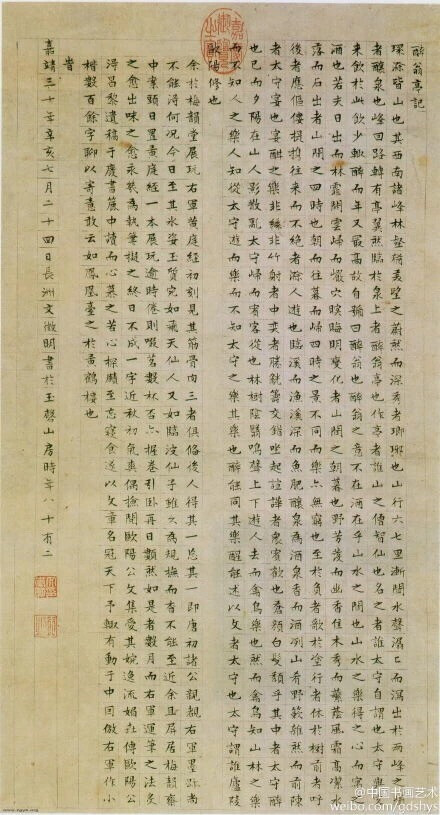 醉翁亭記
環滁皆山也其西南諸峰林壑尤美望之蔚然而深秀者瑯琊也山行六七里漸聞水聲潺〻而瀉出於兩峰之間
者釀泉也峰回路轉有亭翼然臨於泉上者醉翁亭也作亭者誰山之僧智仙也名之者誰太守自謂也太守與客
來飲於此飲少輒醉而年又最高故自號曰醉翁也醉翁之意不在酒在乎山水之間也山水之樂得之心而寓之
酒也若夫日出而林霏開雲歸而巖穴暝晦明變化者山間之朝暮也野芳發而幽香佳木秀而繁蔭風霜高潔水
落而石出者山間之四時也朝而往暮而歸四時之景不同而樂亦無窮也至於負者歌於塗行者休於樹前者呼
後者應傴僂提攜往來而不絕者滁人遊也臨溪而漁溪深而魚肥釀泉為酒泉香而酒冽山肴野蔌雜然而前陳
者太守宴也宴酣之樂非絲非竹射者中奕者勝觥籌交錯坐起諠譁者衆賓歡也蒼顏白髮頹乎其中者太守醉
也已而夕陽在山人影散亂太守歸而賓客從也林樹陰翳鳴聲上下遊人去而禽鳥樂也然而禽鳥知山林之樂
而不知人之樂人知從太守遊而樂而不知太守之樂其樂也醉能同其樂醒能述以文者太守也太守謂誰廬陵
歐陽修也
余於梅韻堂展玩右軍黃庭經初刻見其筋骨肉三者俱備後人得其一忘其一即唐初諸公親覩右軍墨跡尚
不能得何況今日至其水姿玉質宛如飛天仙人又如臨波仙子雖久為規撫而杳不能至近余且屏居梅韻齋
中案頭日置黃庭經一本展玩逾時倦則啜茗數杯否亦握卷引臥再日頹然如是者數月而右軍運筆之法炙
之愈出味之愈永裝為執筆擬之終日不成一字近秋初氣爽偶撿閱歐陽公文集愛其婉逸流媚世傳歐陽公
得昌黎遺稿于廢書簏中讀而心慕之苦心探賾至忘寢食遂以文章名冠天下予輒有動于中因倣右軍作小
楷數百餘字聊以寄意敢云如鳳凰臺之於黃鶴樓也
嘉靖三十年辛亥七月二十四日長洲文徵明書於玉磬山房時年八十有二
@中国书画艺术
weibo.com/gdshys